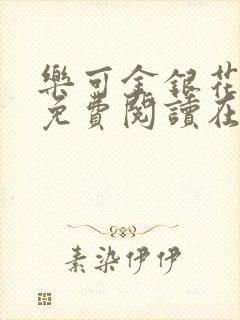 樂可金銀花
免費閱讀在
素染伊伊